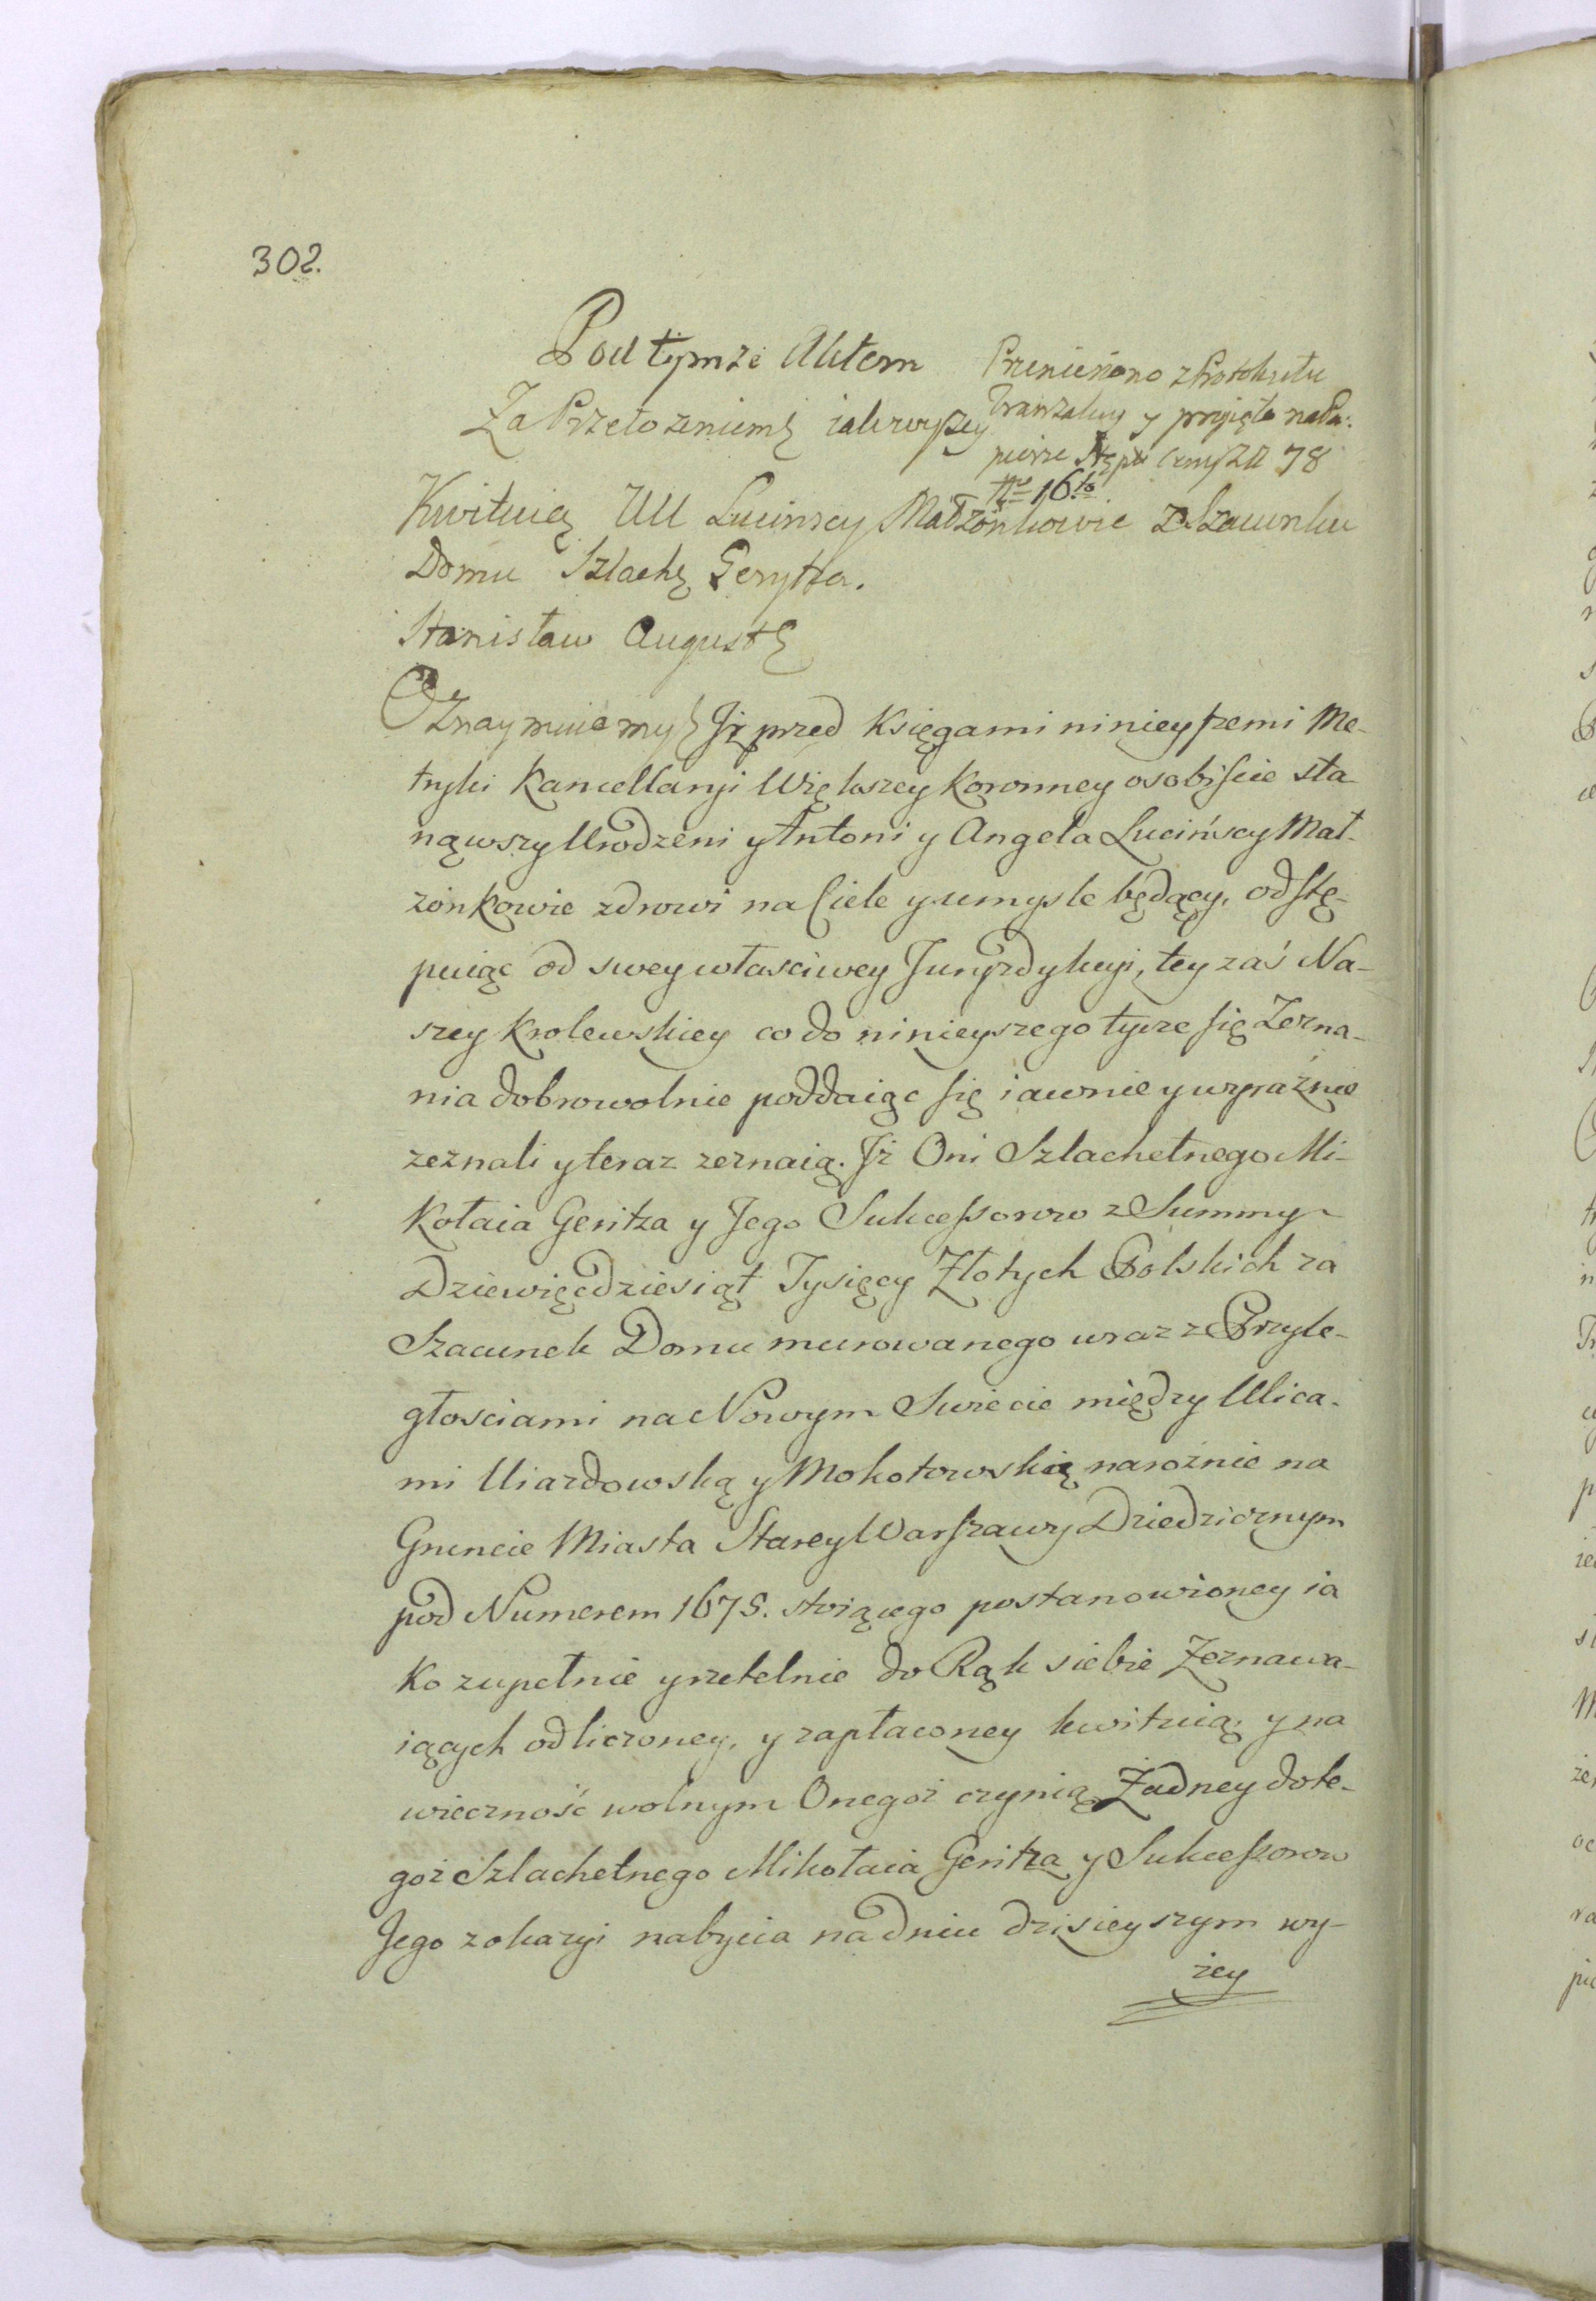 302.
Pod tymże Aktem
Za Przełożeniem iak wyszey
Przeniesiono z Protokułu
Tranzakcyi y przyięto na Pa:
pierze Stępli Ceny Zł 78
No 16to
Kwituią UU Lucinscy Małżonkowie z Szacunku
Domu Szlach Gerytza.
Stanisław August
Oznaymuiemy Iż przed Księgami ninieyszemi Me-
tryki Kancellaryi Większey Koronney osobiście sta
nąwszy Urodzeni y Antoni y Angela Lucińscy Mał-
żonkowie zdrowi na Ciele y umysle będący, odstę-
puiąc od swey własciwey Juryzdykcyi, tey zaś Na-
szey Krolewskiey co do ninieyszego tycze się Zezna-
nia dobrowolnie poddaiąc się iawnie y wyraźnie
zeznali y teraz zeznaią. Iż Oni Szlachetnego Mi-
kołaia Geritza y Jego Sukcessorow z Summy
Dziewięćdziesiąt Tysięcy Złotych Polskich za
Szacunek Domu murowanego wraz z Przyle-
głosciami na Nowym Swiecie między Ulica-
mi Uiazdowską y Mokotowską narożnie na
Gruncie Miasta Starey Warszawy Dziedzicznym
pod Numerem 1675. stoiącego postanowioney ia
ko zupełnie y rzetelnie do Rąk siebie Zeznawa-
iących odliczoney, y zapłaconey kwituią, y na
wieczność wolnym Onegoż czynią, Żadney do te-
goż Szlachetnego Mikołaia Geritza y Sukcessorow
Jego z okazyi nabycia na dniu dzisieyszym wy-
żey